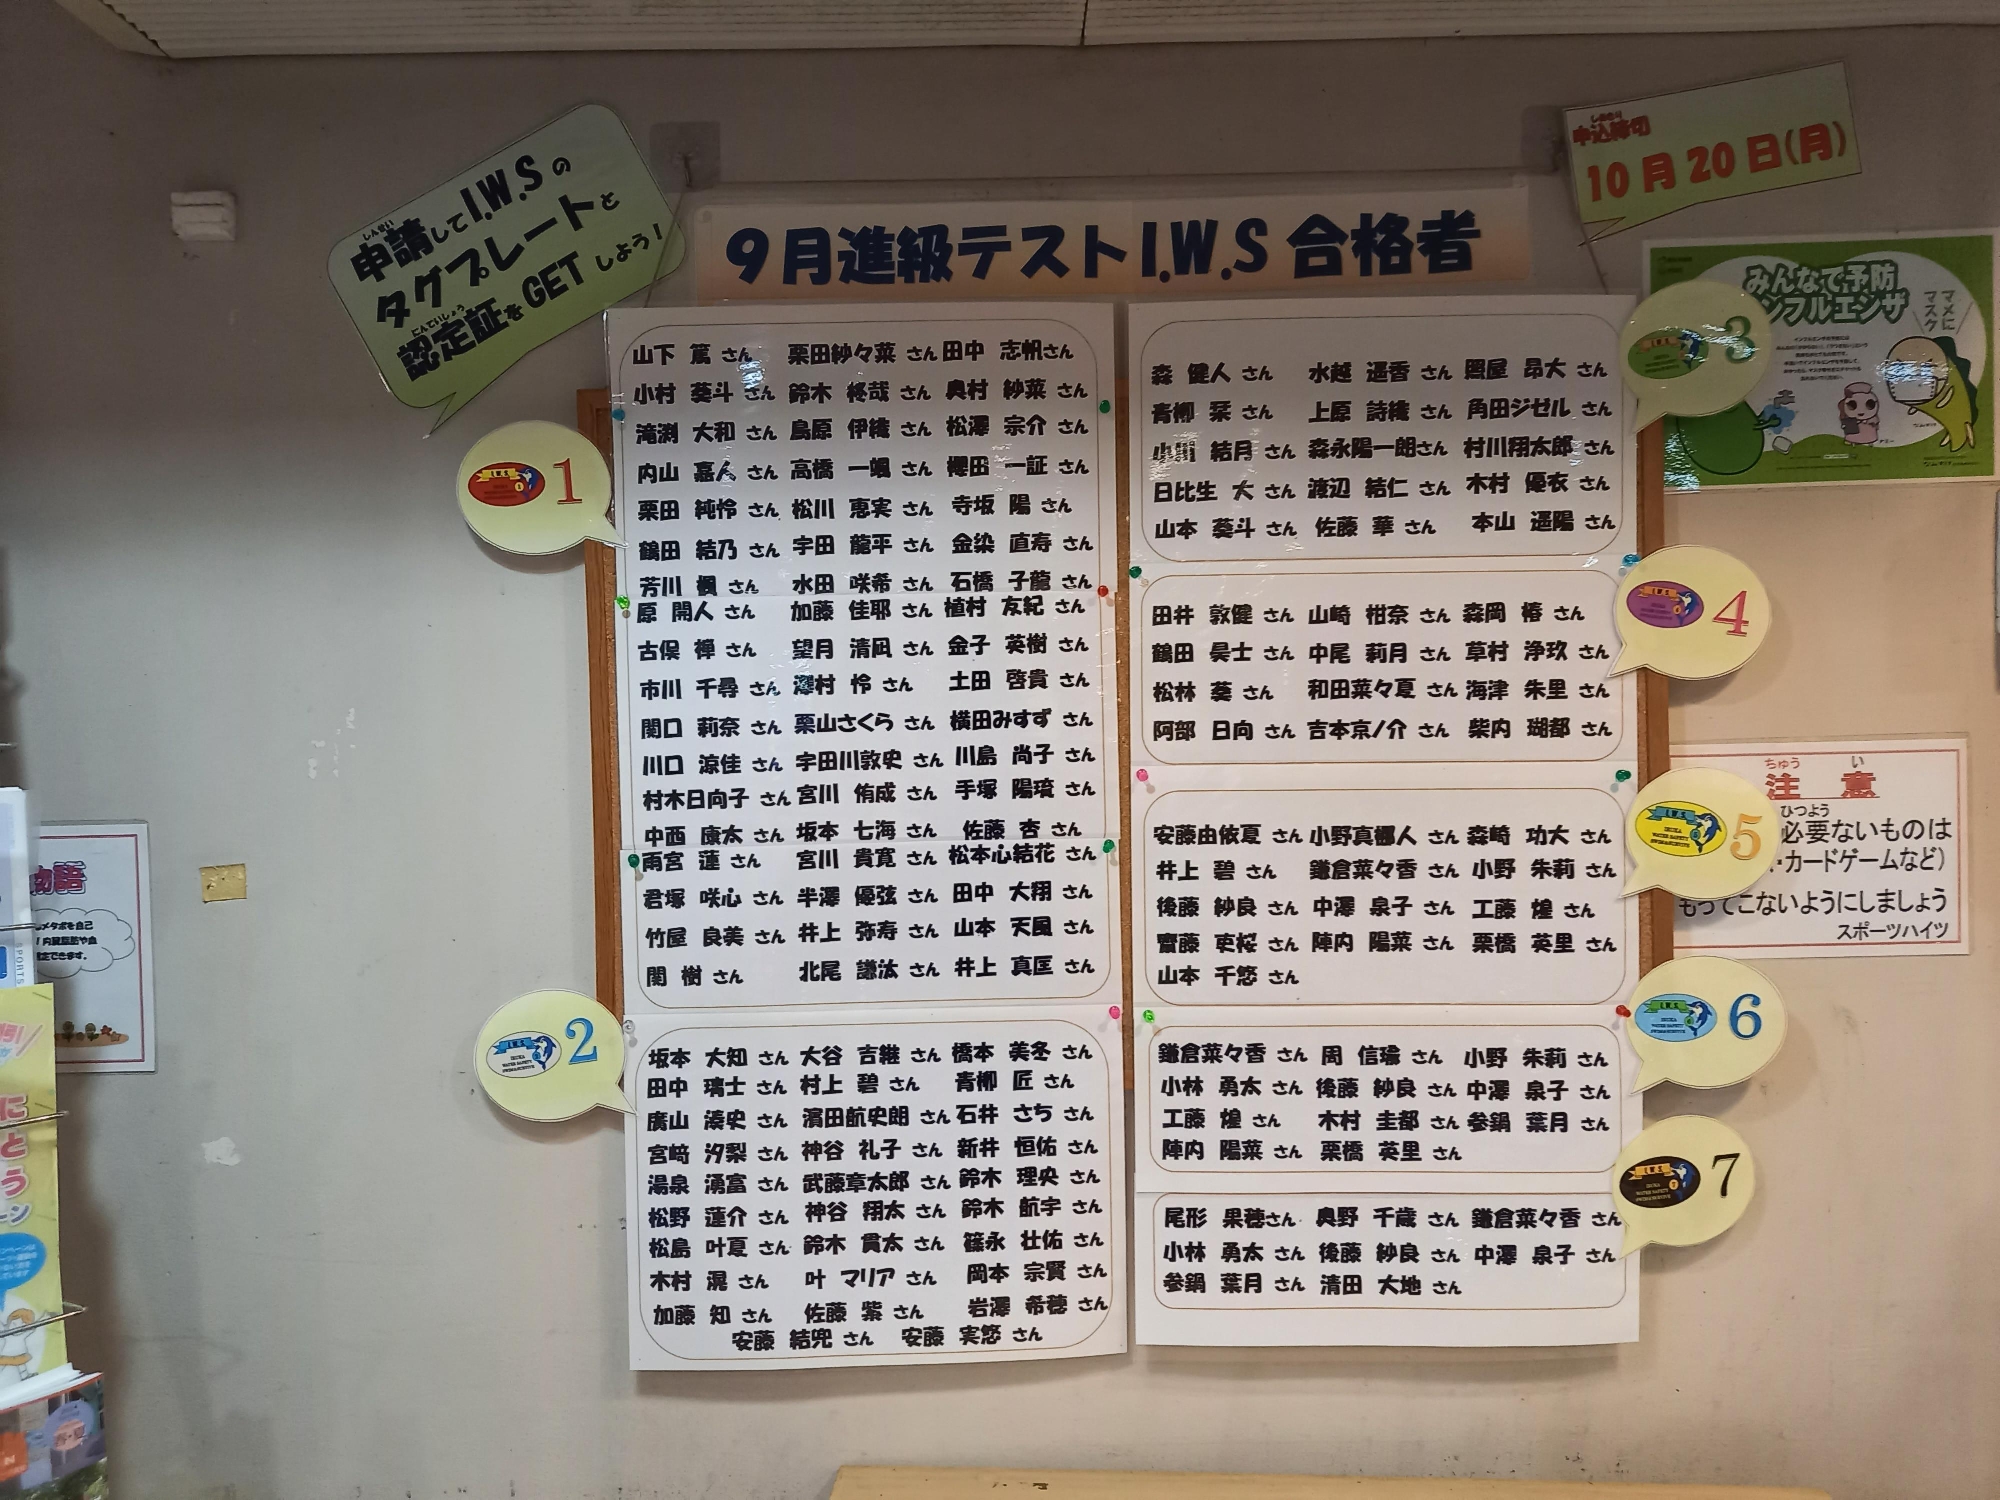 申請して I.W.S の
しんせい
タグプレートと
認定証を GET しよう！
にんていしょう
申込締切
しめきり
10月20日(月)
9月進級テスト I.W.S 合格者
1
山下 篤 さん 栗田紗々菜 さん 田中 志帆さん
小村 葵斗 さん 鈴木 柊哉 さん 奥村 紗菜 さん
滝渕 大和 さん 鳥原 伊織 さん 松澤 宗介 さん
内山 嘉人 さん 高橋 一颯 さん 櫻田 一証 さん
栗田 純怜 さん 松川 恵実 さん 寺坂 陽 さん
鶴田 結乃 さん 宇田 龍平 さん 金染 直寿 さん
芳川 楓 さん 水田 咲希 さん 石橋 子龍 さん
原 開人 さん 加藤 佳耶 さん 植村 友紀 さん
古俣 禅 さん 望月 清凪 さん 金子 英樹 さん
市川 千尋 さん 澤村 怜 さん 土田 啓貴 さん
関口 莉奈 さん 栗山さくら さん 横田みすず さん
川口 涼佳 さん 宇田川敦史 さん 川島 尚子 さん
村木日向子 さん 宮川 侑成 さん 手塚 陽琉 さん
中西 康太 さん 坂本 七海 さん 佐藤 杏 さん
雨宮 蓮 さん 宮川 貴寛 さん 松本心結花 さん
君塚 咲心 さん 半澤 優弦 さん 田中 大翔 さん
竹屋 良美 さん 井上 弥寿 さん 山本 天風 さん
関 樹 さん 北尾 謙汰 さん 井上 真匡 さん
2
坂本 大知 さん 大谷 吉継 さん 橋本 美冬 さん
田中 瑞士 さん 村上 碧 さん 青柳 匠 さん
廣山 湊史 さん 濱田航史朗 さん 石井 さち さん
宮﨑 汐梨 さん 神谷 礼子 さん 新井 恒佑 さん
湯泉 湧富 さん 武藤章太郎 さん 鈴木 理央 さん
松野 蓮介 さん 神谷 翔太 さん 鈴木 航宇 さん
松島 叶夏 さん 鈴木 貫太 さん 篠永 壮佑 さん
木村 滉 さん 叶 マリア さん 岡本 宗賢 さん
加藤 知 さん 佐藤 紫 さん 岩澤 希穂 さん
安藤 結兜 さん 安藤 実悠 さん
3
森 健人 さん 水越 遥香 さん 照屋 昂大 さん
青柳 栞 さん 上原 詩織 さん 角田ジゼル さん
小川 結月 さん 森永陽一朗さん 村川翔太郎 さん
日比生 大 さん 渡辺 結仁 さん 木村 優衣 さん
山本 葵斗 さん 佐藤 華 さん 本山 遥陽 さん
4
田井 敦健 さん 山崎 柑奈 さん 森岡 椿 さん
鶴田 昊士 さん 中尾 莉月 さん 草村 浄玖 さん
松林 葵 さん 和田菜々夏 さん 海津 朱里 さん
阿部 日向 さん 吉本京ノ介 さん 柴内 瑚都 さん
5
安藤由依夏 さん 小野真梛人 さん 森崎 功大 さん
井上 碧 さん 鎌倉菜々香 さん 小野 朱莉 さん
後藤 紗良 さん 中澤 泉子 さん 工藤 煌 さん
齋藤 吏桜 さん 陣内 陽菜 さん 栗橋 英里 さん
山本 千悠 さん
6
鎌倉菜々香 さん 周 信瑜 さん 小野 朱莉 さん
小林 勇太 さん 後藤 紗良 さん 中澤 泉子 さん
工藤 煌 さん 木村 圭都 さん 参鍋 葉月 さん
陣内 陽菜 さん 栗橋 英里 さん
7
尾形 果穂さん 奥野 千歳 さん 鎌倉菜々香 さん
小林 勇太 さん 後藤 紗良 さん 中澤 泉子 さん
参鍋 葉月 さん 清田 大地 さん
みんなで予防
ンフルエンザ
マメに
マスク
ちゅう い
注 意
ひつよう
必要ないものは
・カードゲームなど）
もってこないようにしましょう
スポーツハイツ
物語
メタボを自己